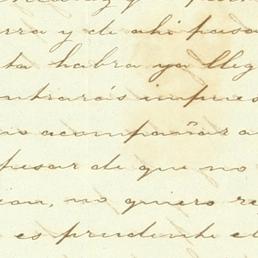 rra y de ahi pasa
ta habra ya lleg
ntrarás impues
acompañar a
pesar de que no
no quiero re
es prudente el